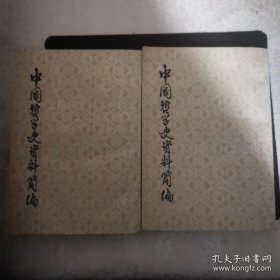 中国哲学史资料简编
中国哲学史资料简编
孔夫子旧书网